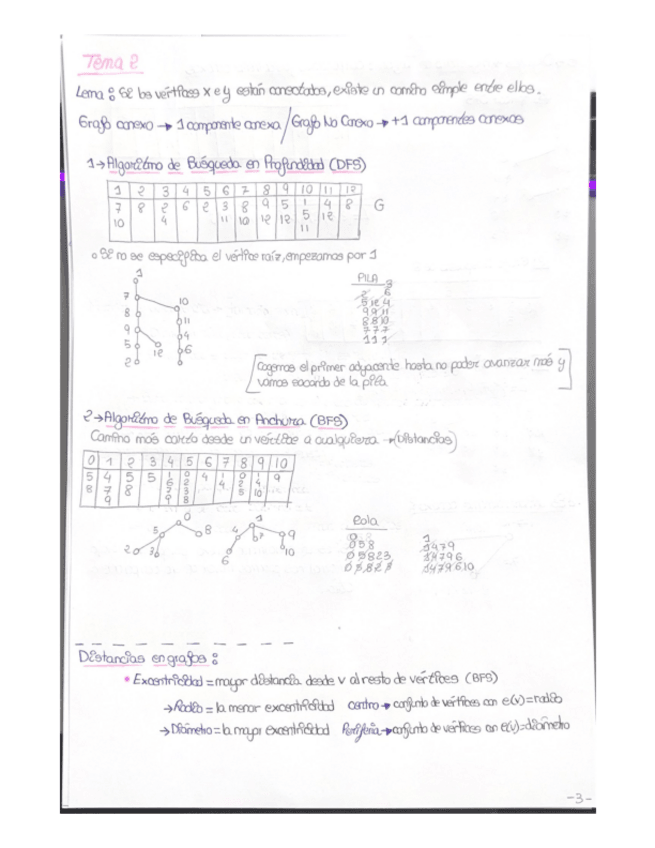 Tema 2
Lema: Si los vértices x e y están conectados, existe un camino simple entre ellos.
Grafo conexo → 1 componente conexa / Grafo No Conexo → +1 componentes conexas
1→ Algoritmo de Búsqueda en Profundidad (DFS)
1 2 3 4 5 6 7 8 9 10 11 12
7 8 2 6 2 3 8 9 5 1 4 8 G
10 4 11 10 12 12 5 12
11
Si no se especifica el vértice raíz, empezamos por 1
1
7 10
8 11
9 4
5 12 6
2
PILA
777
111
Cogemos el primer adyacente hasta no poder avanzar más y
vamos sacando de la pila
2→ Algoritmo de Búsqueda en Anchura (BFS)
Camino más corto desde un vértice a cualquiera → (Distancias)
0 1 2 3 4 5 6 7 8 9 10
5 4 5 5 1 0 4 1 0 1 9
8 7 8 6 2 4 2 4
9 7 3 5 10
9 8
0
5 8
2 3
1
4 7 9
6 10
Cola
0
058
05823
05823
1
1479
14796
1479610
Distancias en grafos:
• Excentricidad = mayor distancia desde v al resto de vértices (BFS)
→ Radio = la menor excentricidad Centro → conjunto de vértices con e(v)=radio
→ Diámetro = la mayor excentricidad Periferia → conjunto de vértices con e(v)=diámetro
-3-